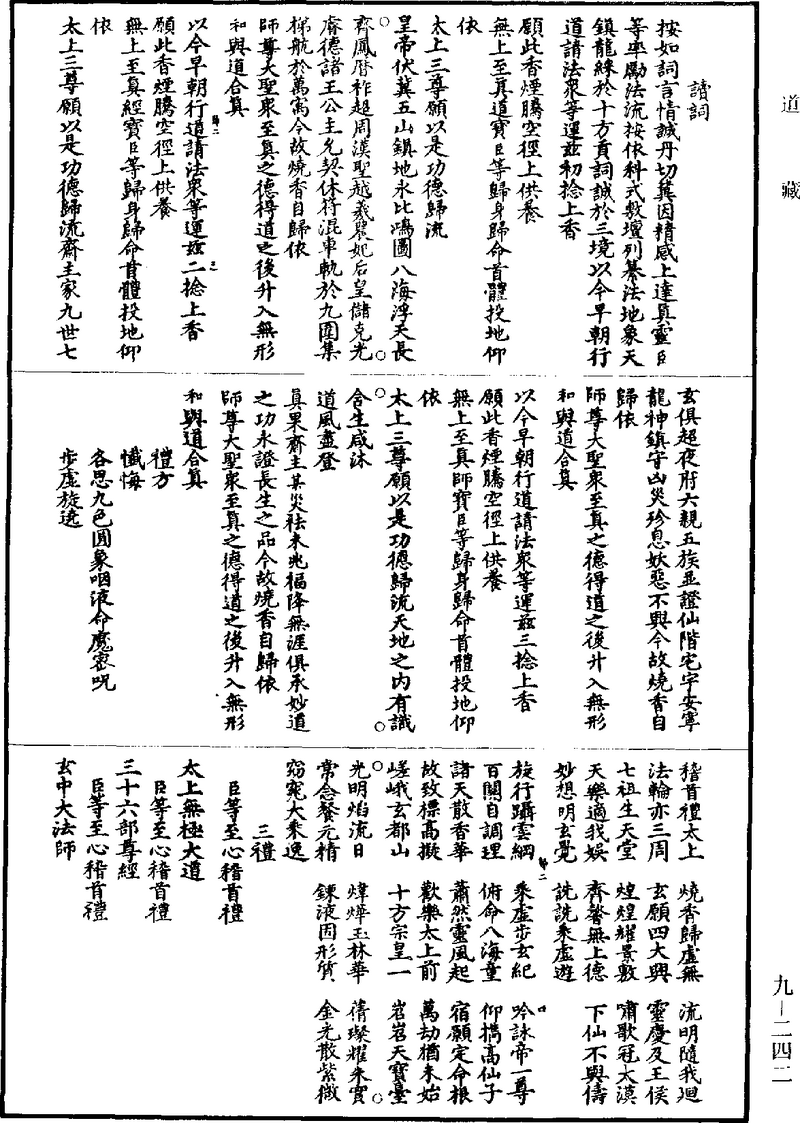 道藏
讀詞
按如詞言情誠丹切冀因精感上達真靈臣
等率勵法流按依科式敷壇列纂法地象天
鎮龍綵於十方貢詞誠於三境以今早朝行
道請法衆等運茲初捻上香
願此香煙騰空徑上供養
無上至真道寶臣等歸身歸命首體投地仰
依
太上三尊願以是功德歸流
皇帝伏冀五山鎮地永比鴻圖八海浮天長
齊鳳曆祚超周漢聖越羲
后皇儲克光
睿德諸王公主允契休符混車軌於九圍集
梯航於萬寓今故燒香自歸依
師尊大聖衆至真之德得道之後升入無形
和與道合真
以今早朝行道請法衆等運茲二捻上香
願此香煙騰空徑上供養
無上至真經寶臣等歸身歸命首體投地仰
依
太上三尊願以是功德歸流齋主家九世七
玄俱超夜府六親五族並證仙階宅宇安寧
龍神鎮守凶災殄息妖惡不興今故燒香自
歸依
師尊大聖衆至真之德得道之後升入無形
和與道合真
以今早朝行道請法衆等運茲三捻上香
願此香煙騰空徑上供養
無上至真師寶臣等歸身歸命首體投地仰
依
太上三尊願以是功德歸流天地之內有識
含生咸沐
道風盡登
真果齋主某災祛未兆福降無涯俱承妙道
之功永證長生之品今故燒香自歸依
師尊大聖衆至真之德得道之後升入無形
和與道合真
禮方
懺悔
各思九色圓象咽液命魔密呪
步虛旋遶
稽首禮太上 燒香歸虛無 流明隨我迴
法輪亦三周 玄願四大興 靈慶及王侯
七祖生天堂 煌煌耀景敷 嘯歌冠太漠
天樂適我娛 齊馨無上德 下仙不與儔
妙想明玄覺 詵詵乘虛遊
旋行躡雲綱 乘虛步玄紀 吟詠帝一尊
百關自調理 俯命八海童 仰攜高仙子
諸天散香華 蕭然靈風起 宿願定命根
故致標高擬 歡樂太上前 萬劫猶未始
嵯峨玄都山 十方宗皇一 岧岧天寶臺
光明焰流日 煒燁玉林華 蒨璨耀朱實
常念餐元精 鍊液固形質 金光散紫微
窈窕大乘逸
三禮
臣等至心稽首禮
太上無極大道
臣等至心稽首禮
三十六部尊經
臣等至心稽首禮
玄中大法師
九-二四二